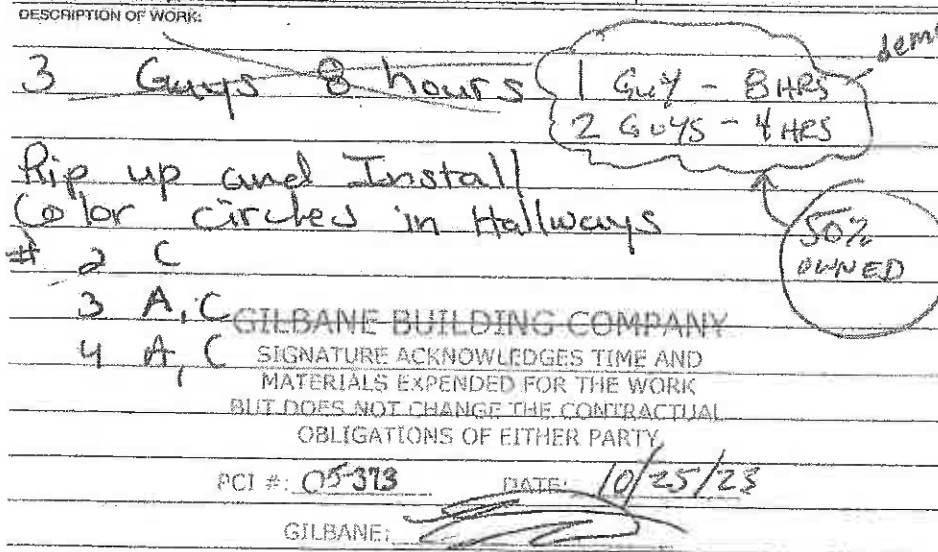 DESCRIPTION OF WORK:
3 Guys 8 hours
1 GUY - 8 HRS
2 GUYS - 4 HRS
Rip up and Install
Color circles in Hallways
50%
OWNED
# 2 C
3 A, C
4 A, C
GILBANE BUILDING COMPANY
SIGNATURE ACKNOWLEDGES TIME AND
MATERIALS EXPENDED FOR THE WORK
BUT DOES NOT CHANGE THE CONTRACTUAL
OBLIGATIONS OF EITHER PARTY.
PCI #: 05-373 DATE: 10/25/23
GILBANE: